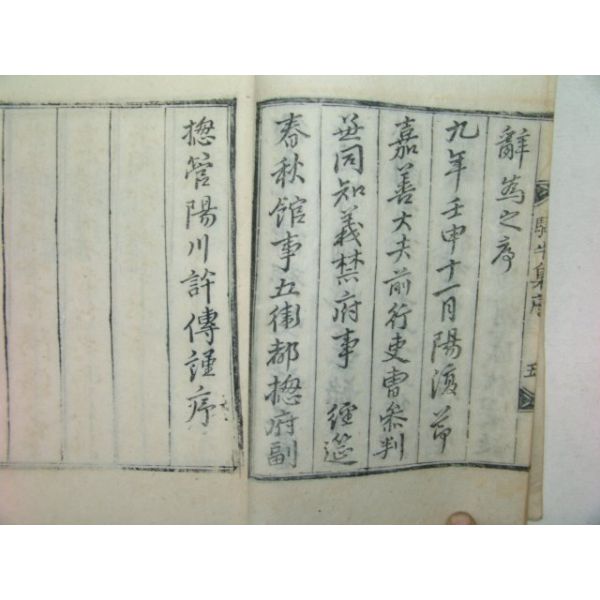 辭為之序
九年壬申十一月陽復節
嘉善大夫前行吏曹參判
兼同知義禁府事 經筵
春秋館事五衛都摠府副
摠管陽川許傳謹序
騎牛集序
五